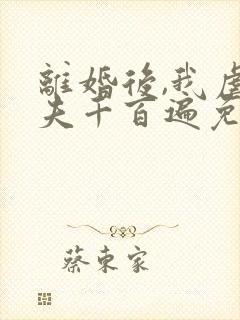 離婚後,我虐
夫千百遍免
蔡東家